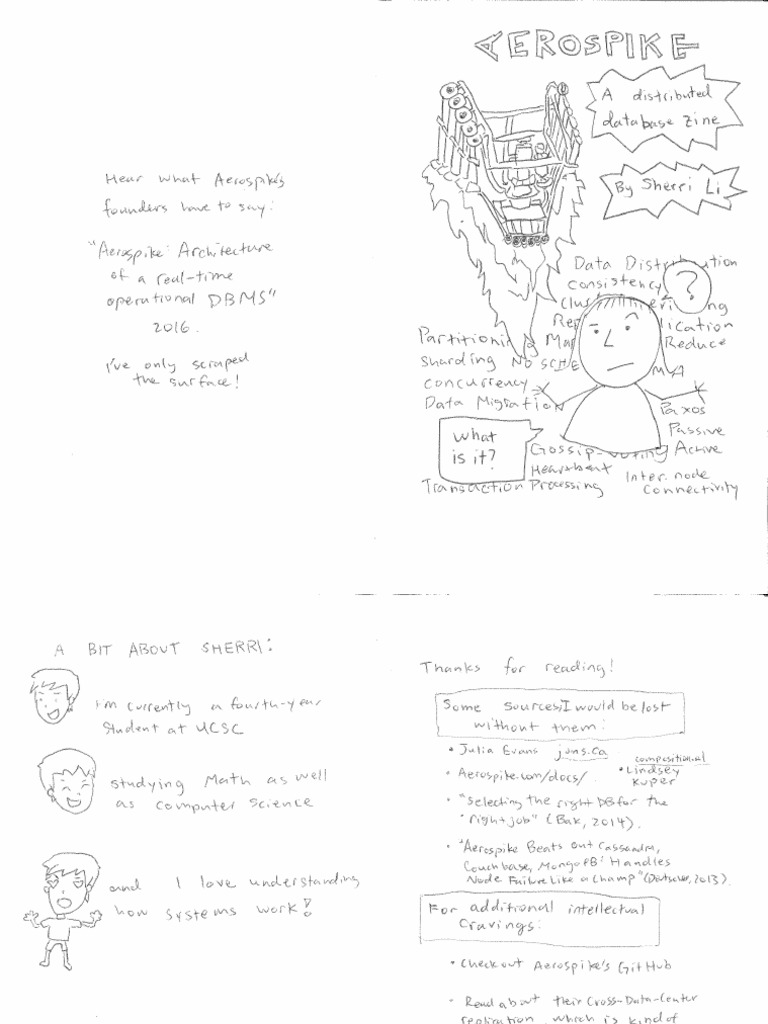 Hear what Aerospike's
founders have to say:
"Aerospike: Architecture
of a real-time
operational DBMS"
2016.
I've only scraped
the surface!
AEROSPIKE
A distributed
database zine
By Sherri Li
Data Distribution
Consistency
?
Partitioning
Reduce
Sharding NO SCHE MA
concurrency
Data Migration
Paxos
Passive
what
is it?
Gossip-Voting Active
Heartbeat
Inter-node
Transaction Processing
Connectivity
A BIT ABOUT SHERRI:
I'm currently a fourth-year
student at UCSC
studying Math as well
as computer science
and I love understanding
how systems work!
Thanks for reading!
Some sources I would be lost
without them:
• Julia Evans jvns.ca
composition.al
• Aerospike.com/docs/
• Lindsey
Kuper
• "Selecting the right DB for the
right job" (Bak, 2014).
• "Aerospike Beats out Cassandra,
Couchbase, MongoDB: Handles
Node Failure Like a Champ" (Deutscher, 2013).
For additional intellectual
cravings:
• Check out Aerospike's GitHub
• Read about their Cross-Data-Center
replication, which is kind of